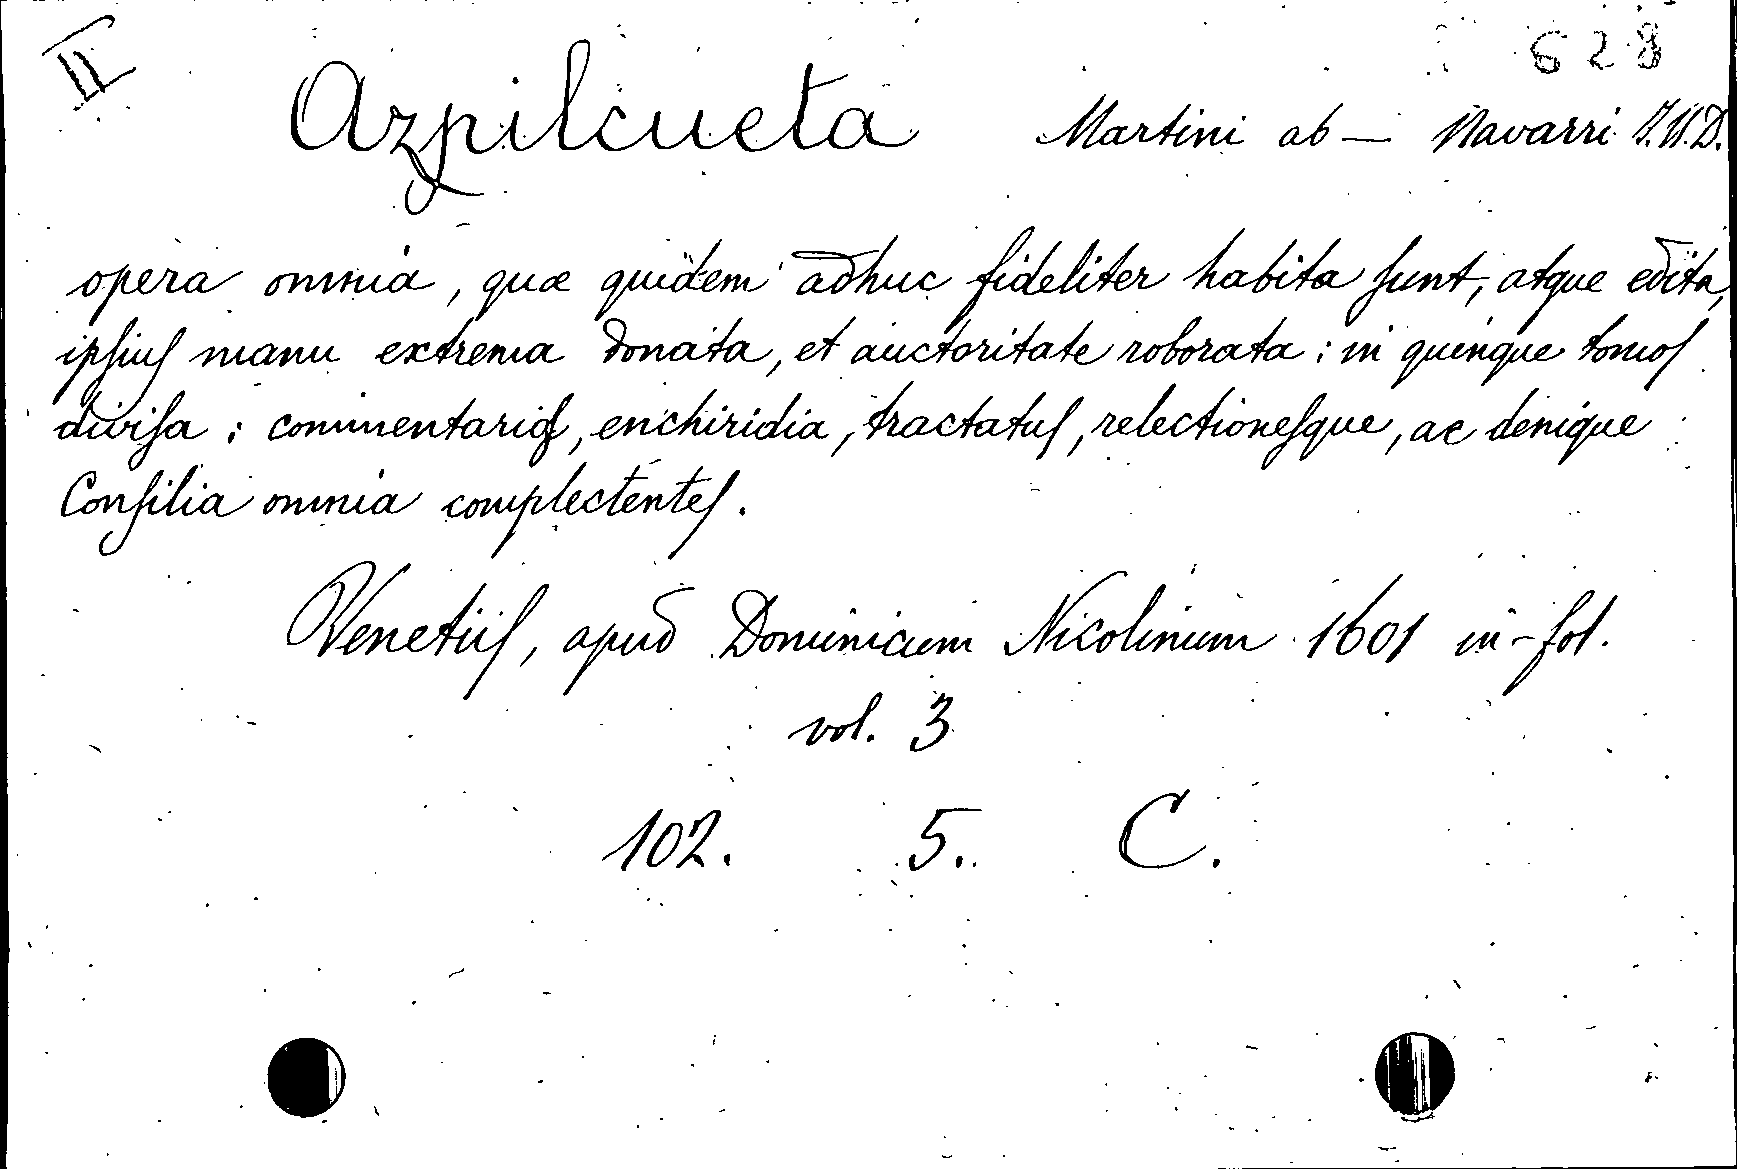 II
628
Azpilcueta Martini ab — Navarri J.U.D.
opera omnia, quæ quidem adhuc fideliter habita sunt, atque edita,
ipsius manu extrema donata, et auctoritate roborata: in quinque tomos
divisa; commentarios, enchiridia, tractatus, relectionesque, ac denique
Consilia omnia complectentes.
Venetiis, apud Dominicum Nicolinum 1601 in-fol.
vol. 3
102. 5. C.